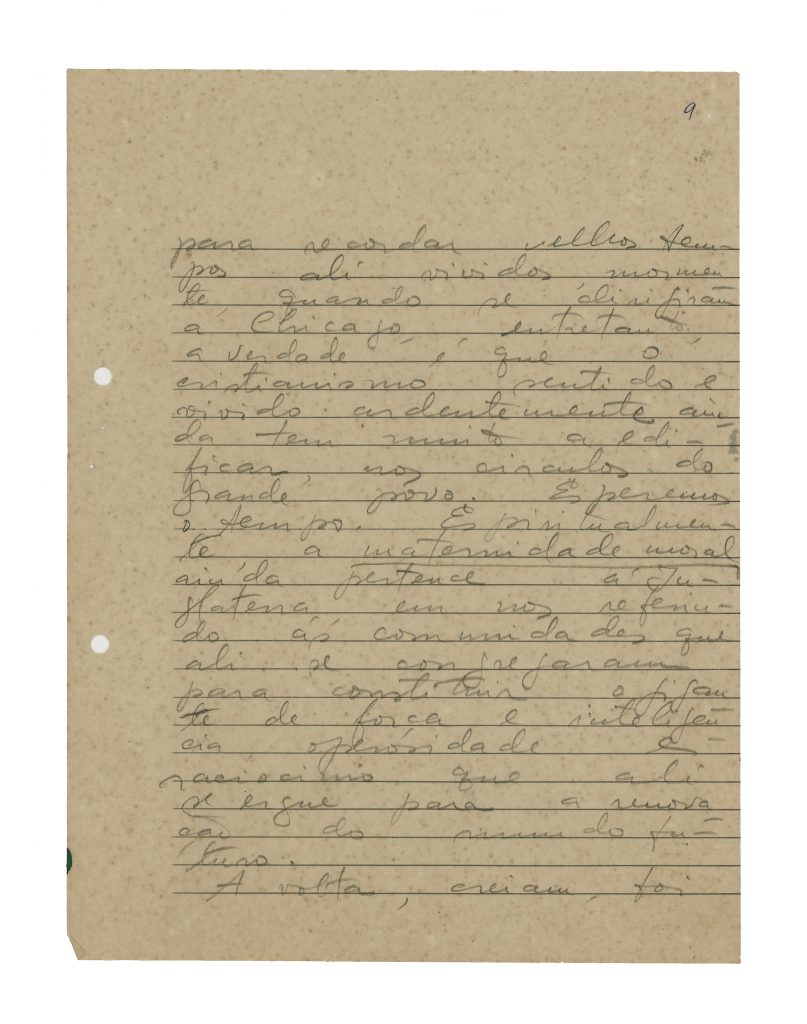 9
para recordar velhos tem-
pos ali vividos mormen
te, quando se dirigiram
a Chicago, entretanto,
a verdade é que o
cristianismo sentido e
vivido ardentemente ain
da tem muito a edi-
ficar, nos circulos do
grande povo. Esperemos
o tempo. Espiritualmen-
te a maternidade moral
ainda pertence á In-
glaterra em nos referin-
do ás comunidades que
ali se congregaram
para constituir o gigan
te de força e inteligên
cia, operosidade e
raciocinio que ali
se ergue para a renova
ção do mundo fu-
turo.
A volta, creiam, foi